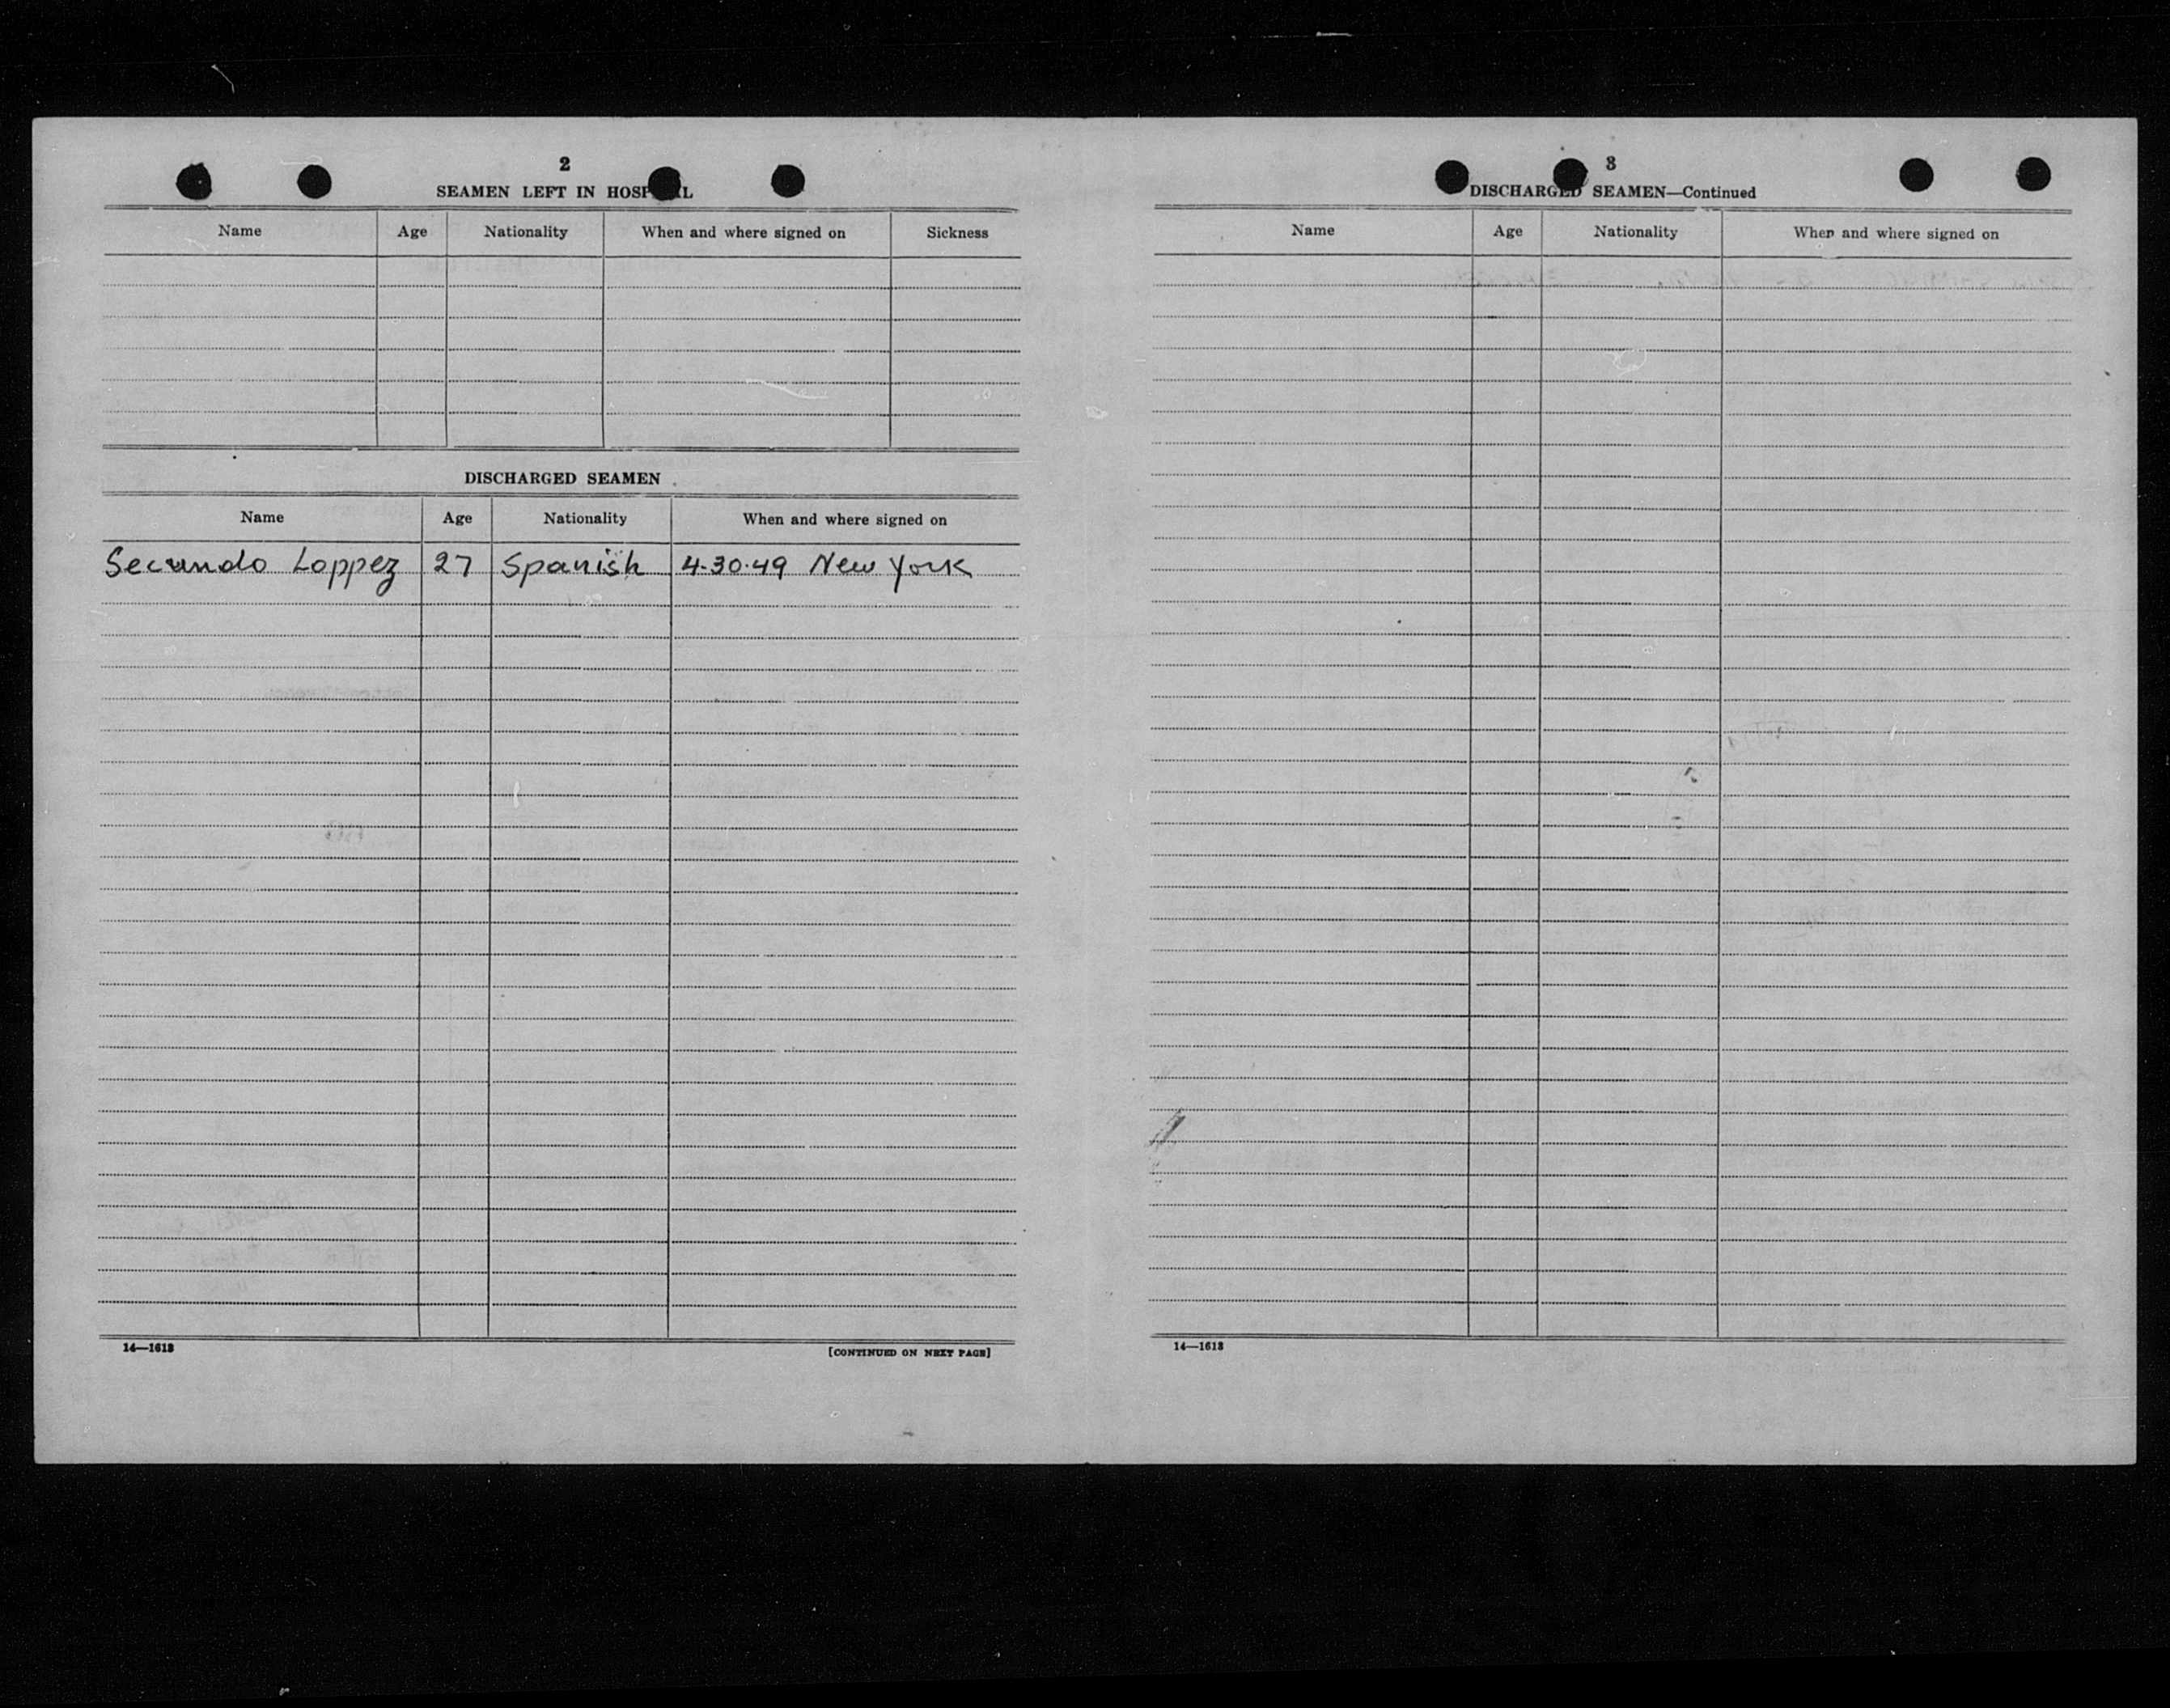 2
SEAMEN LEFT IN HOSP L
Name Age Nationality When and where signed on Sickness
DISCHARGED SEAMEN
Name Age Nationality When and where signed on
Secundo Loppez 27 Spanish 4-30-49 New York
14—1613
[CONTINUED ON NEXT PAGE]
3
DISCHARGED SEAMEN—Continued
Name Age Nationality When and where signed on
14—1613